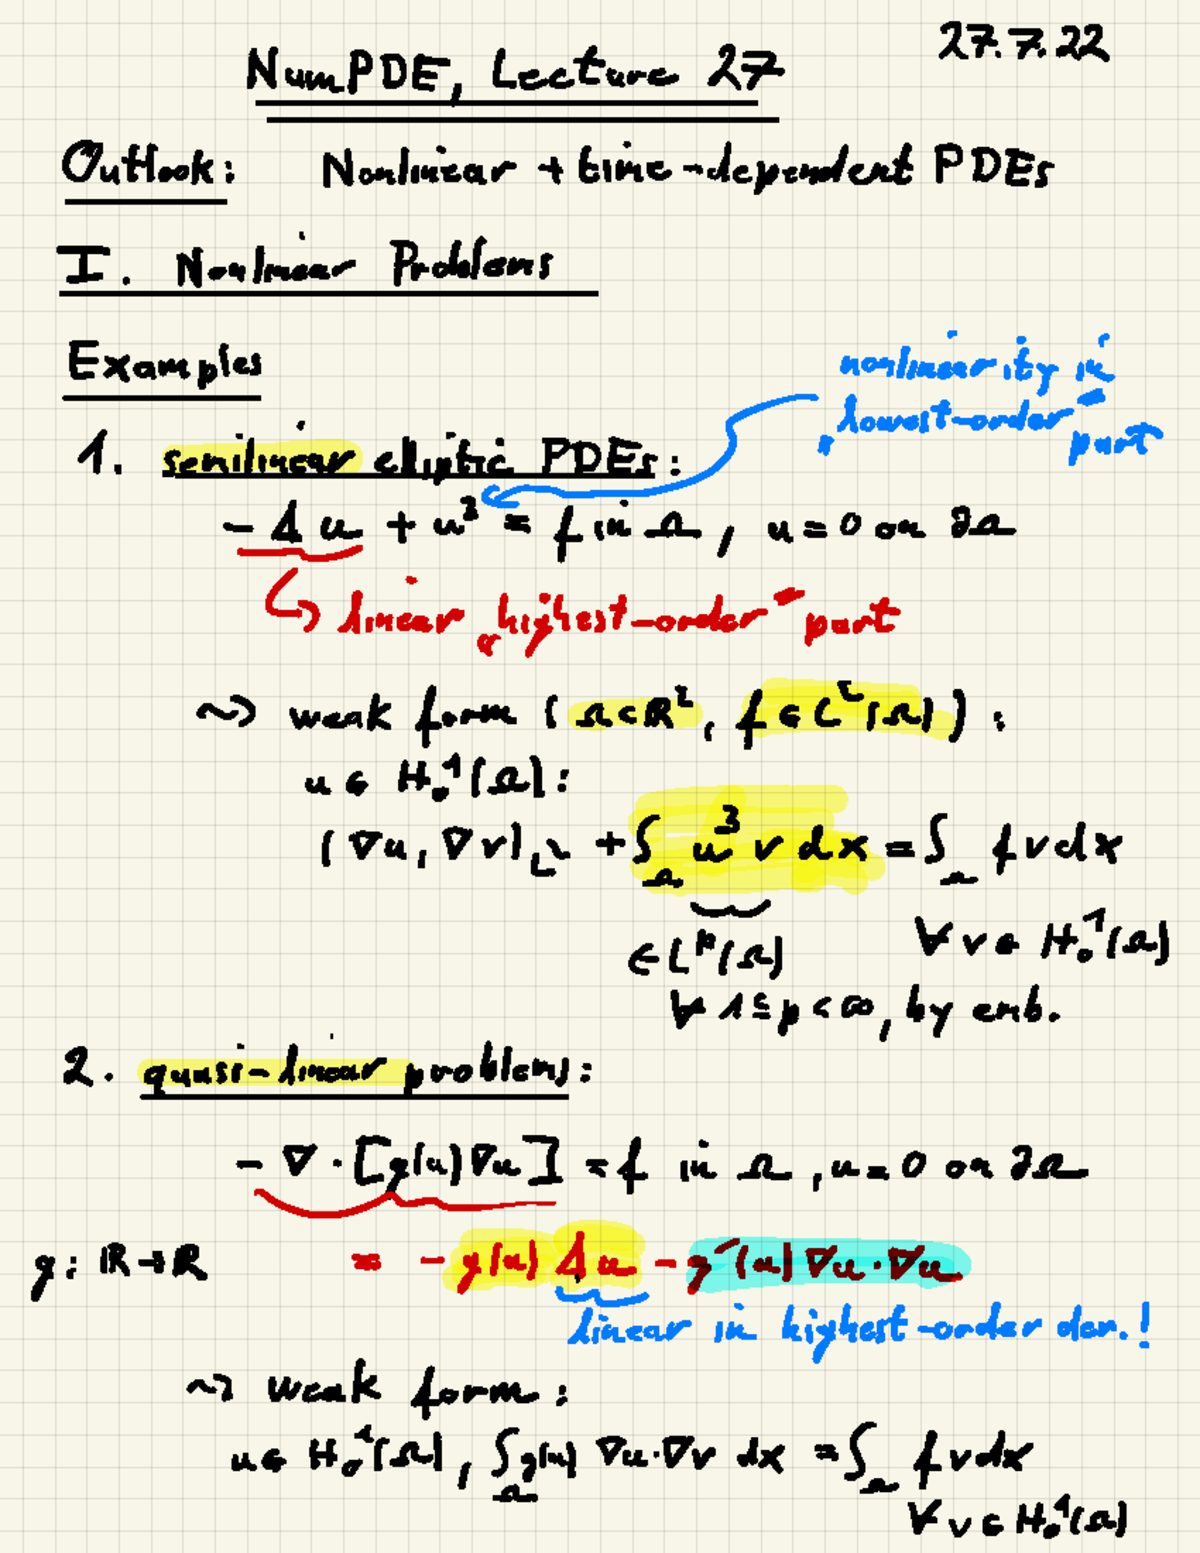 27.7.22
NumPDE, Lecture 27
Outlook: Nonlinear + time-dependent PDEs
I. Nonlinear Problems
Examples
nonlinearity in
„lowest-order" part
1. semilinear elliptic PDEs:
- Δu + u³ = f in Ω, u = 0 on ∂Ω
↪ linear „highest-order" part
⇝ weak form (Ω⊂ℝ², f ∈ L²(Ω)):
u ∈ H₀¹(Ω):
(∇u, ∇v)_L² + ∫_Ω u³ v dx = ∫_Ω f v dx
∀ v ∈ H₀¹(Ω)
∈ Lᵖ(Ω)
∀ 1 ≤ p < ∞, by emb.
2. quasi-linear problems:
- ∇ · [g(u)∇u] = f in Ω, u = 0 on ∂Ω
g: ℝ→ℝ = - g(u) Δu - g'(u) ∇u · ∇u
linear in highest-order der.!
⇝ weak form:
u ∈ H₀¹(Ω), ∫_Ω g(u) ∇u · ∇v dx = ∫_Ω f v dx
∀ v ∈ H₀¹(Ω)